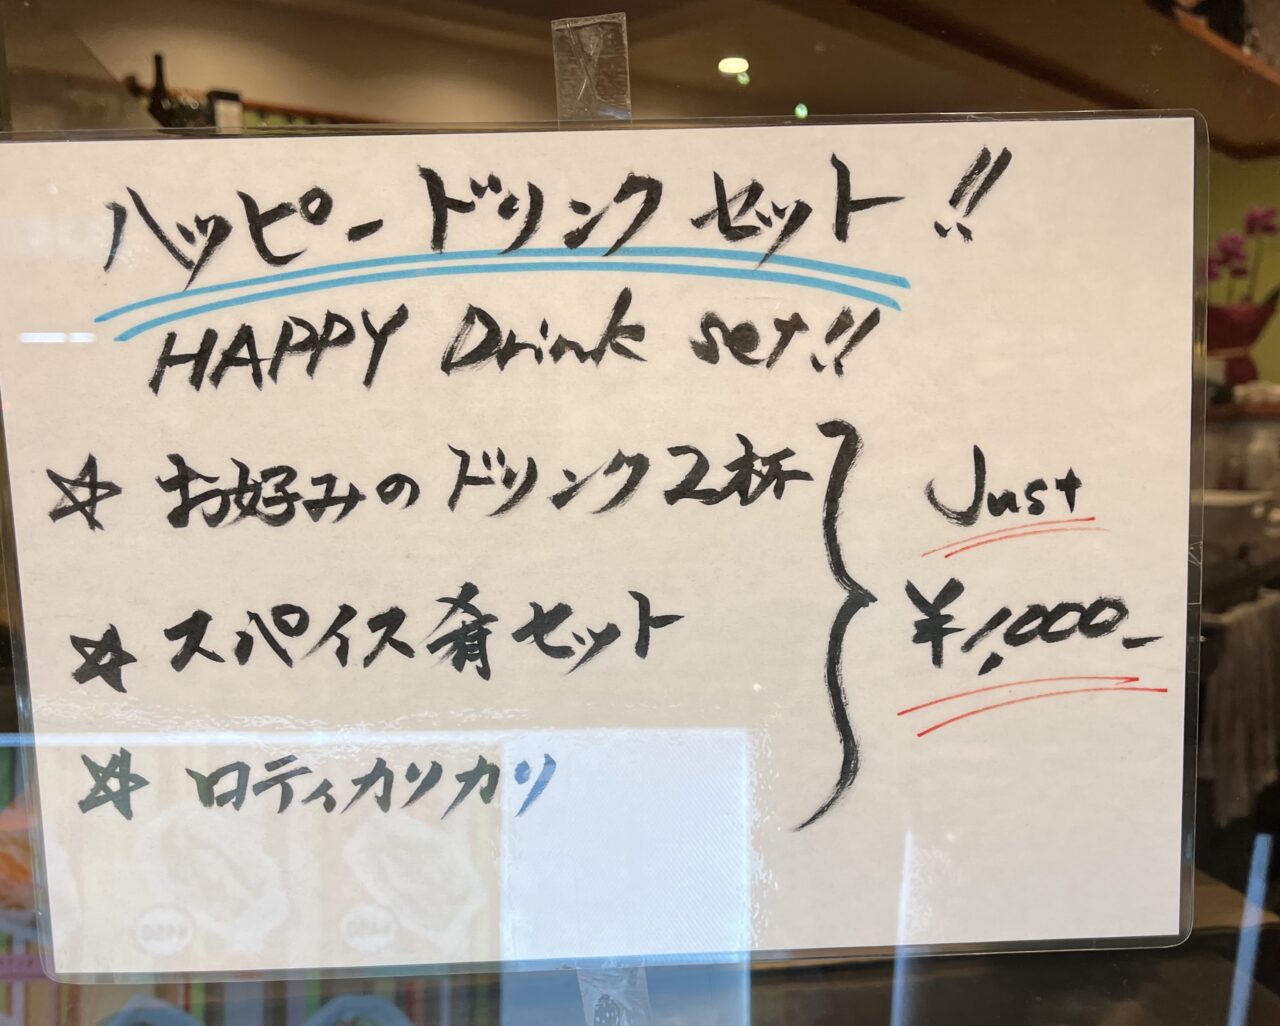 ハッピードリンクセット!!
HAPPY Drink set!!
☆ お好みのドリンク2杯
☆ スパイス肴セット
☆ ロティカリカリ
Just
¥1,000-